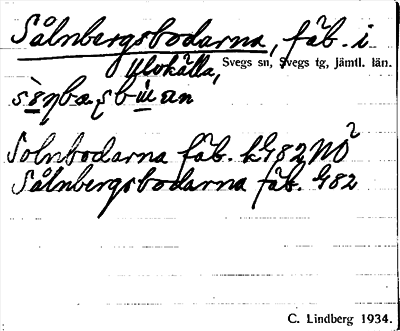 Sålnbergsbodarna, fäb. i
Ulvkälla, Svegs sn, Svegs tg, Jämtl. län.
Solnbodarna fäb. kG82NÖ²
Sålnbergsbodarna fäb. G82
C. Lindberg 1934.